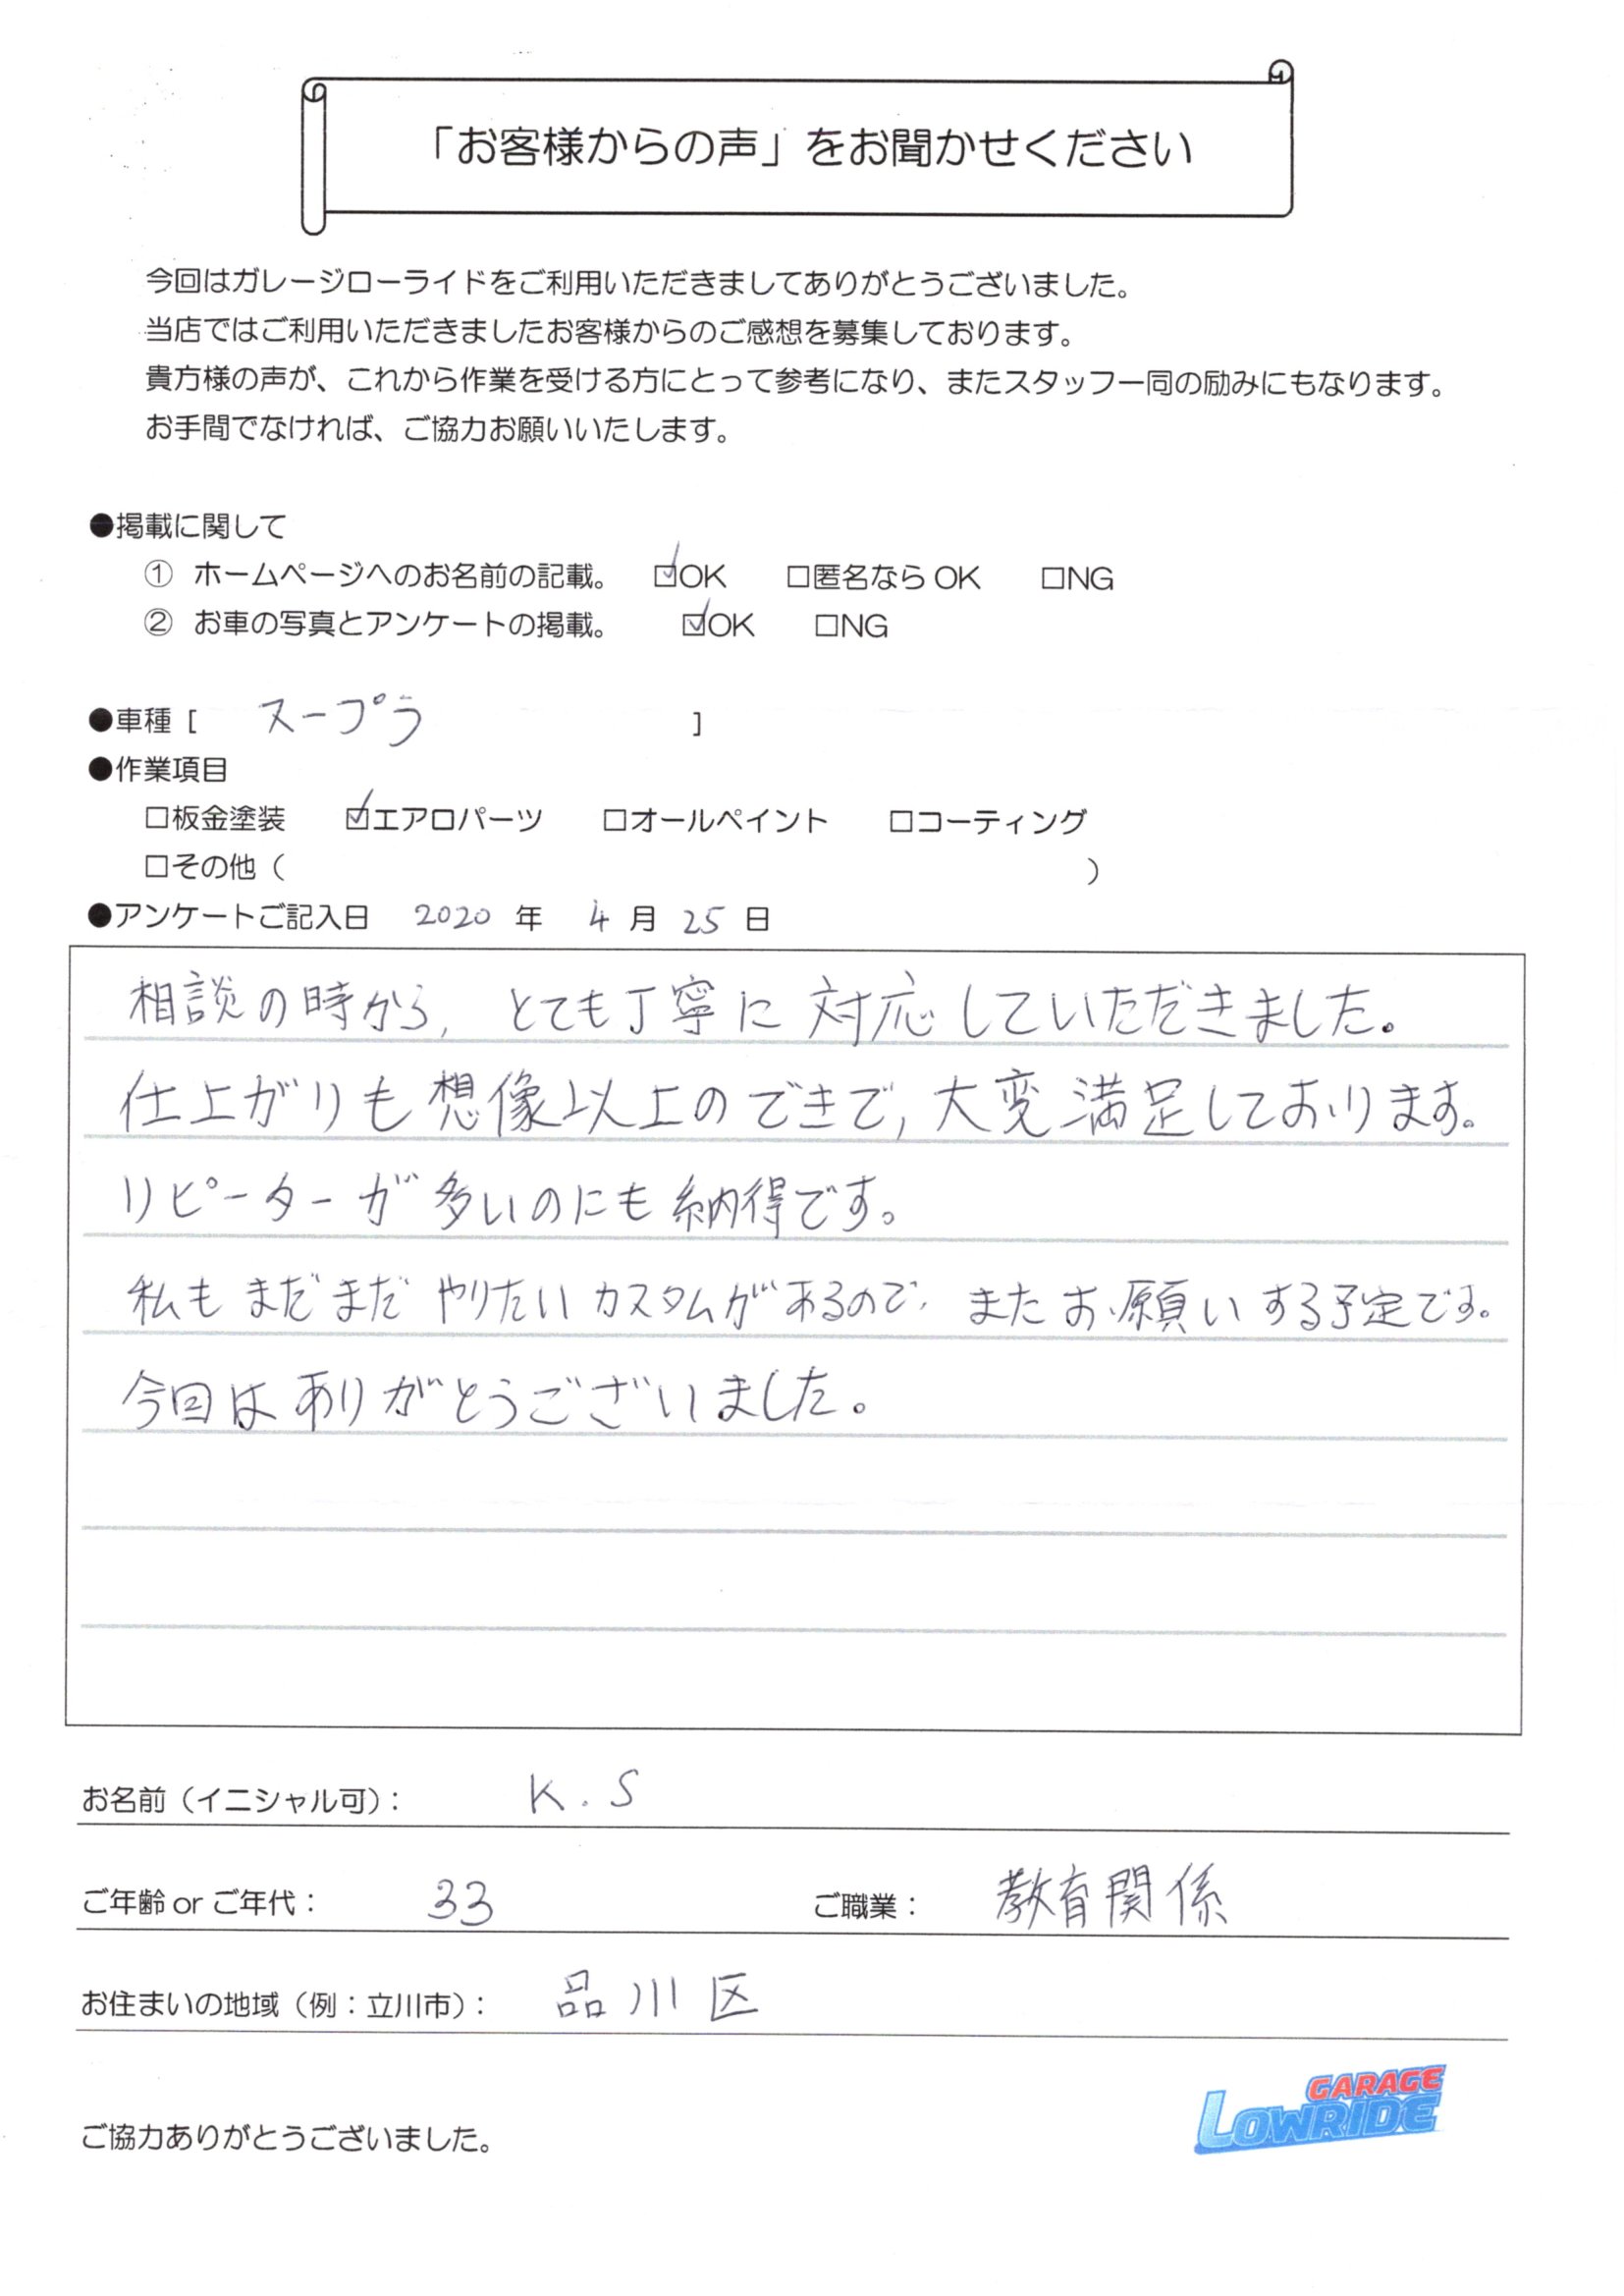 「お客様からの声」をお聞かせください
今回はガレージローライドをご利用いただきましてありがとうございました。
当店ではご利用いただきましたお客様からのご感想を募集しております。
貴方様の声が、これから作業を受ける方にとって参考になり、またスタッフ一同の励みにもなります。
お手間でなければ、ご協力お願いいたします。
●掲載に関して
① ホームページへのお名前の記載。 ☑OK □匿名なら OK □NG
② お車の写真とアンケートの掲載。 ☑OK □NG
●車種 [ スープラ ]
●作業項目
□板金塗装 ☑エアロパーツ □オールペイント □コーティング
□その他（ ）
●アンケートご記入日 2020 年 4 月 25 日
相談の時から, とても丁寧に対応していただきました。
仕上がりも想像以上のできで, 大変満足しております。
リピーターが多いのにも納得です。
私もまだまだやりたいカスタムがあるので, またお願いする予定です。
今回はありがとうございました。
お名前（イニシャル可）： K.S
ご年齢 or ご年代： 33 ご職業： 教育関係
お住まいの地域（例：立川市）： 品川区
GARAGE
LOWRIDE
ご協力ありがとうございました。